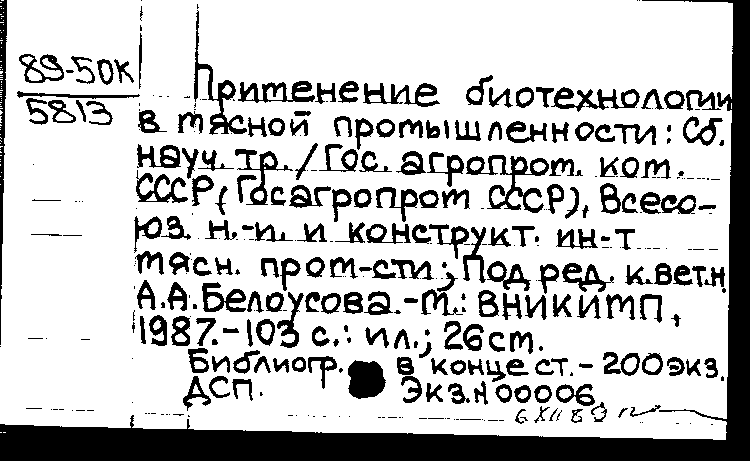 89-50К
5813
Применение биотехнологии
в мясной промышленности: Сб.
науч. тр. / Гос. агропром. ком.
СССР (Госагропром СССР), Всесо-
юз. н.-и. и конструкт. ин-т
мясн. пром-сти; Под ред. к.вет.н
А.А.Белоусова.-М.: ВНИКИМП,
1987.-103 с.: ил.; 26см.
Библиогр. в конце ст.- 200экз.
ДСП. Экз.N 00006.
6 XII 89